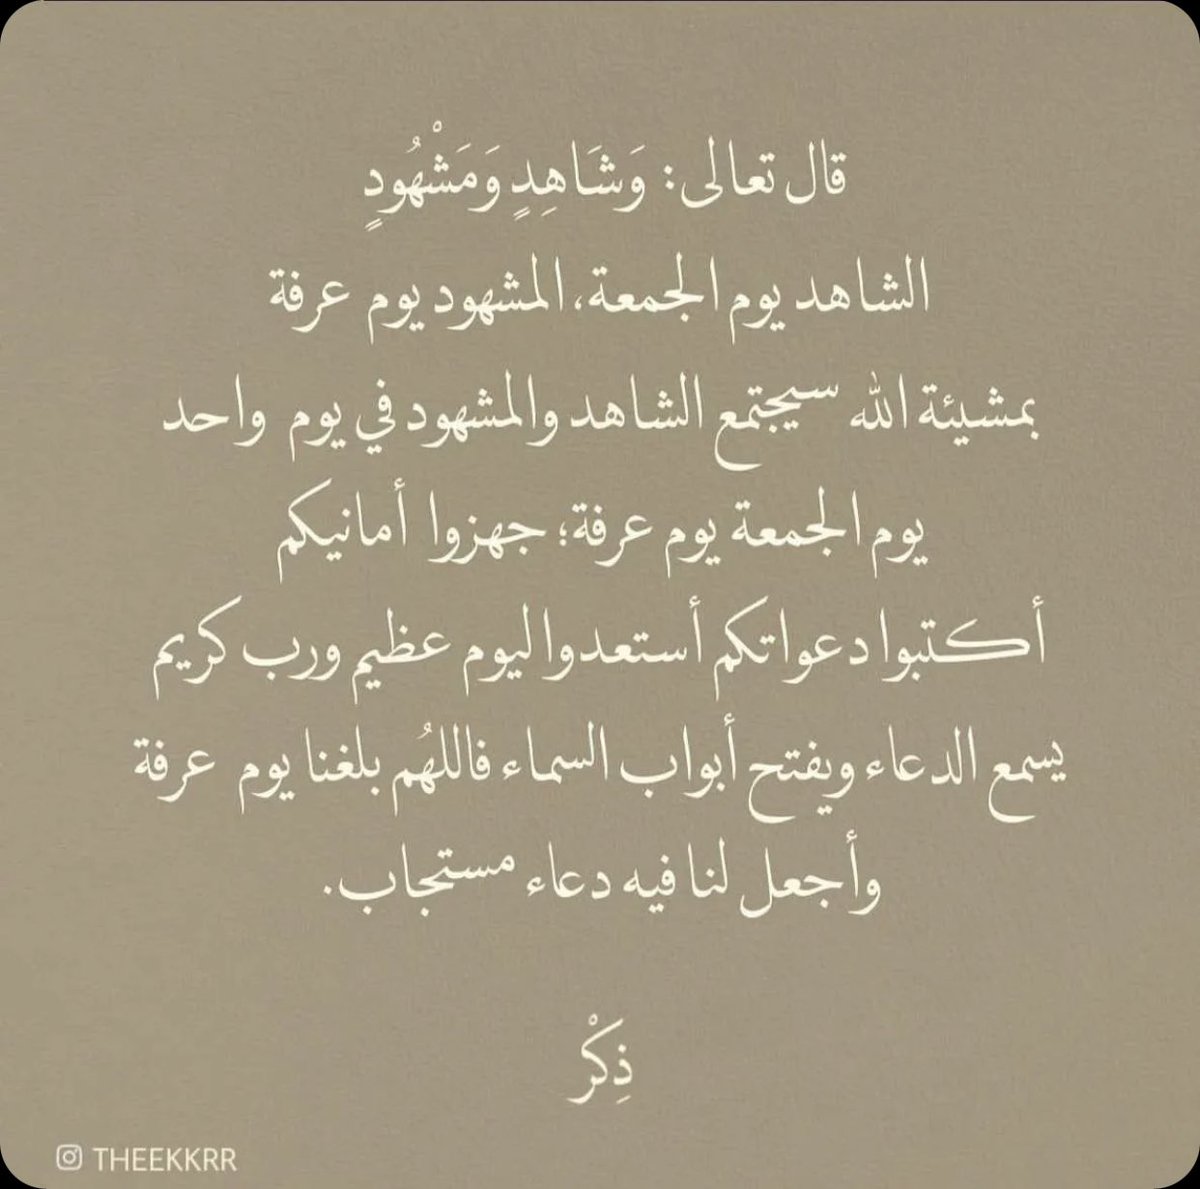 قال تعالى: وَشَاهِدٍ وَمَشْهُودٍ
الشاهد يوم الجمعة، المشهود يوم عرفة
بمشيئة الله سيجتمع الشاهد والمشهود في يوم واحد
يوم الجمعة يوم عرفة؛ جهزوا أمانيكم
أكتبوا دعواتكم أستعدوا ليوم عظيم ورب كريم
يسمع الدعاء ويفتح أبواب السماء فاللهُم بلغنا يوم عرفة
وأجعل لنا فيه دعاء مستجاب.
ذِكْر
THEEKKRR